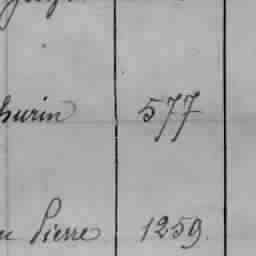 hurin 577
Pierre 1259.